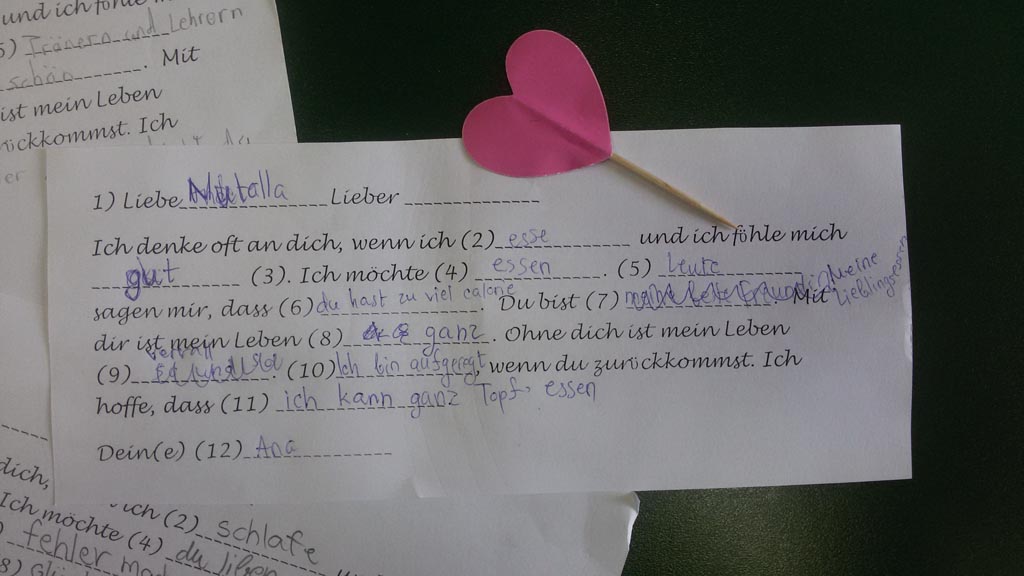 und ich föhle m
5) Tränern und Lehrern
schön. Mit
ist mein Leben
rückkommst. Ich
er
1) Liebe Nutalla Lieber
Ich denke oft an dich, wenn ich (2) esse und ich föhle mich
gut (3). Ich möchte (4) essen. (5) Leute
sagen mir, dass (6) du hast zu viel calorie. Du bist (7) Meine Lieblingsessen Mit
dir ist mein Leben (8) ganz. Ohne dich ist mein Leben
(9). (10) Ich bin aufgeregt wenn du zurückkommst. Ich
hoffe, dass (11) ich kann ganz Topf essen
Dein(e) (12) Ana
dich,
ich (2) schlafe
Ich möchte (4) du
fehler mac
8)